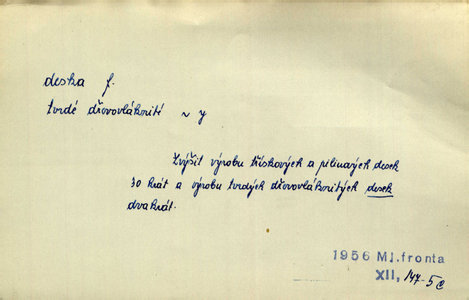 deska f.
tvrdé dřevovláknité ~ y
Zvýšit výrobu třískových a pilinových desek
30 krát a výrobu tvrdých dřevovláknitých desek
dvakrát.
1956 Ml.fronta
XII, 147-5